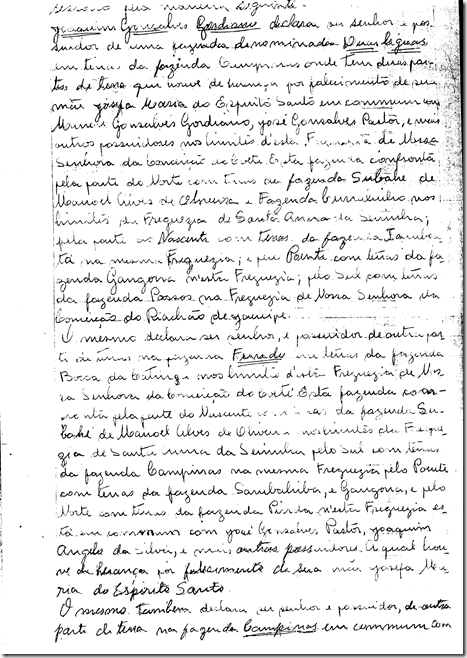 pela maneira seguinte
Joaquim Gonsalves Gordiano declara ser senhor e pos-
suidor de uma fazenda denominada Duas lagoas
em terras da fazenda Campinas onde tem duas par-
tes de terra que houve de herança por falecimento de sua
mãe Josefa Maria do Espirito Santo em commum com
Manoel Gonsalves Gordiano, José Gonsalves Pastor, e mais
outros possuidores nos limites d'esta Freguezia de Nossa
Senhora da Conceição do Coité. Esta fazenda confronta
pela parte do Norte com terras da fazenda Subahé de
Manoel Alves de Oliveira e Fazenda nos
limites da Freguezia de Santa Anna da Serrinha;
pela parte do Nascente com terras da fazenda
tá na mesma Freguezia; e pelo Poente com terras da fa-
zenda Gangorra n'esta Freguezia; pelo Sul com terras
da fazenda Passos na Freguezia de Nossa Senhora da
Conceição do Riachão de Jacuipe.
O mesmo declara ser senhor, e possuidor de outra par-
te de terras na fazenda em terras da fazenda
Bocca da Catinga nos limites d'esta Freguezia de Nos-
sa Senhora da Conceição do Coité. Esta fazenda con-
fronta pela parte do Nascente com terras da fazenda Su-
bahé de Manoel Alves de Oliveira nos limites da Fregue-
zia de Santa Anna da Serrinha pelo Sul com terras
da fazenda Campinas na mesma Freguezia pelo Poente
com terras da fazenda Sambahiba, e Gangorra, e pelo
Norte com terras da fazenda Pinda n'esta Freguezia es-
tá em commum com José Gonsalves Pastor, Joaquim
Angelo da Silva, e mais outros possuidores. A qual hou-
ve de herança por falescimento de sua mãe Josefa Ma-
ria do Espírito Santo.
O mesmo tambem declara ser senhor e possuidor, de outra
parte de terra na fazenda Campinas em commum com